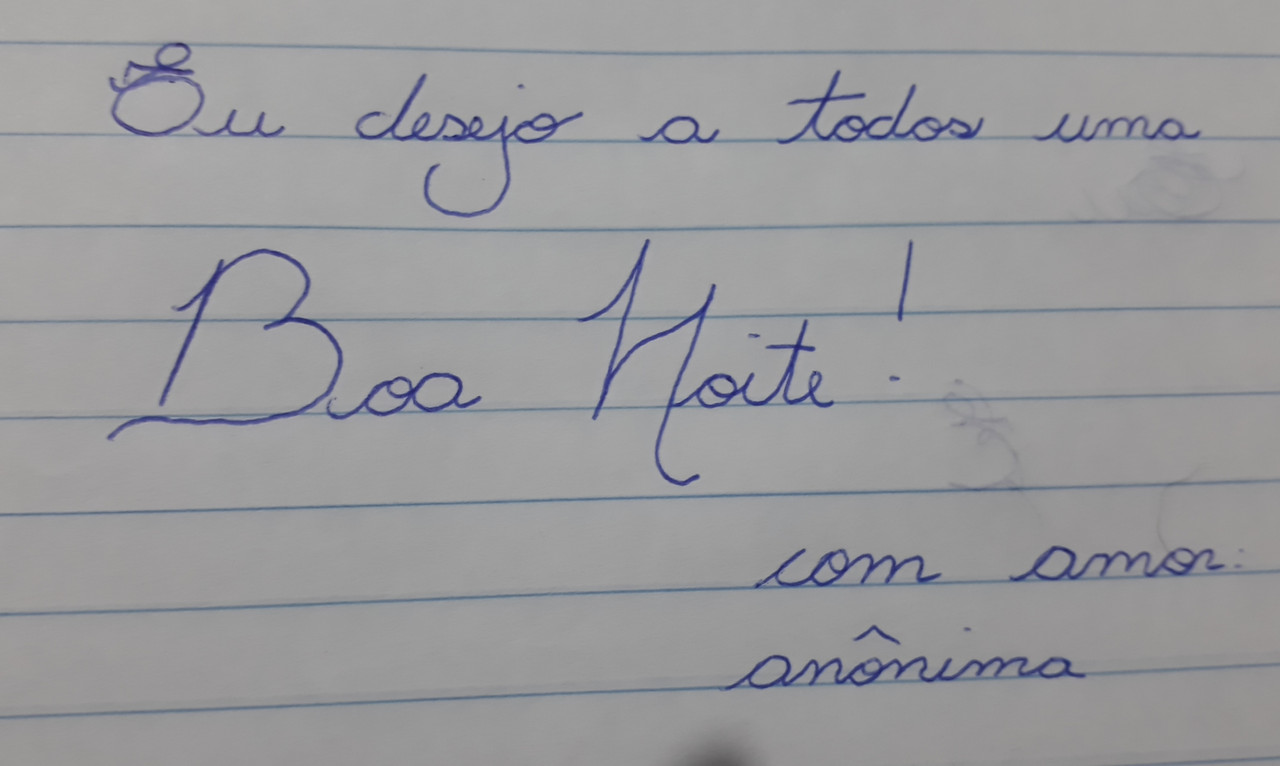 Eu desejo a todos uma
Boa Noite!
com amor:
anônima